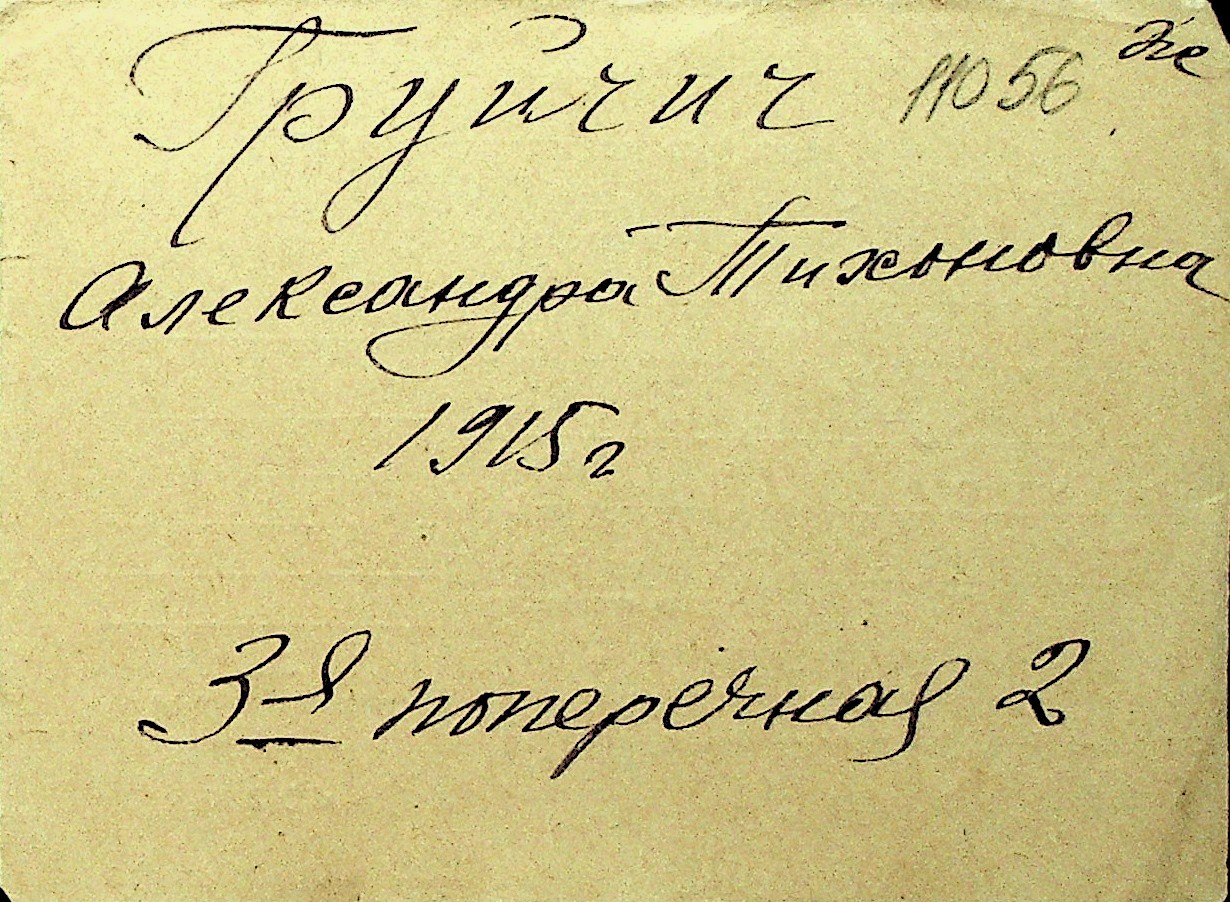 Груйчич 11056 же
Александра Тихоновна
1915 г
3-я поперечная 2